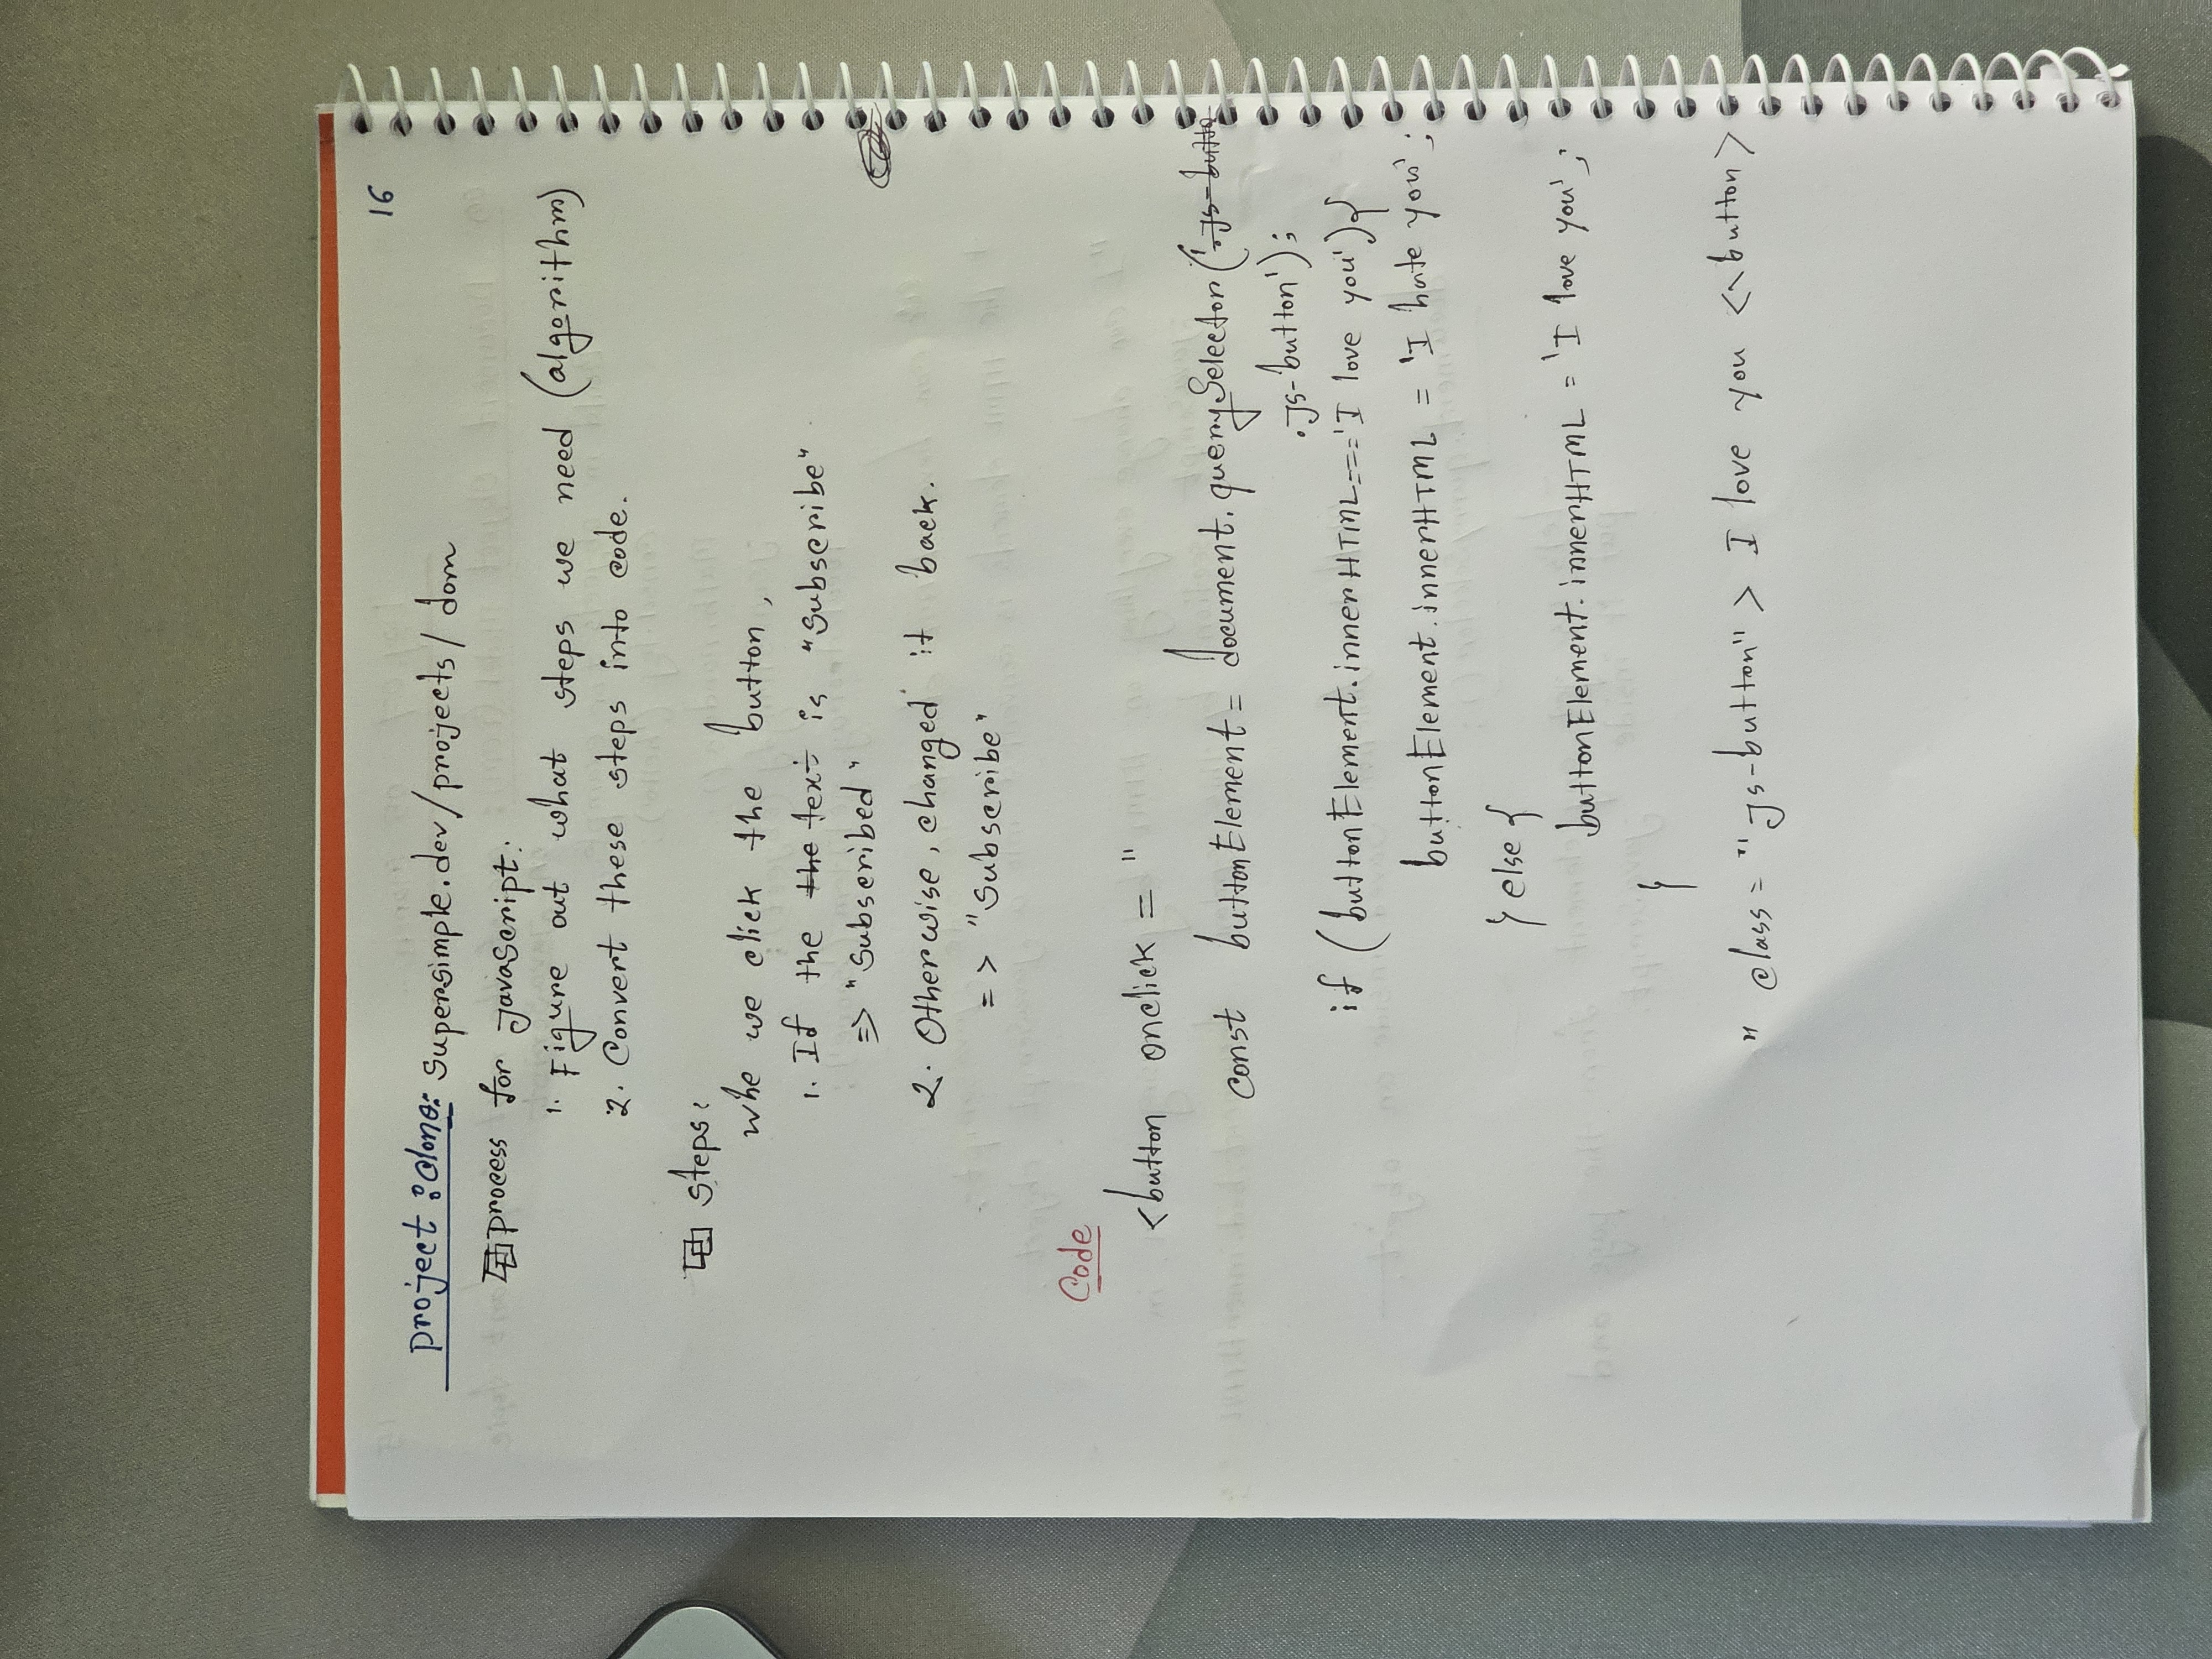 16
Project : Clone: Supersimple.dev/projects/dom
Process for JavaScript:
1. Figure out what steps we need (algorithm)
2. Convert these steps into code.
Steps:
Whe we click the button,
1. If the the text is "Subscribe"
=> "Subscribed"
2. Otherwise, changed it back.
=> "Subscribe"
Code
<button onclick = "
const buttonElement = document.querySelector('.js-butto
.js-button');
if (buttonElement.innerHTML==='I love you'){
buttonElement.innerHTML = 'I hate you';
} else {
buttonElement.innerHTML = 'I love you';
}
" class = "js-button" > I love you <\button>